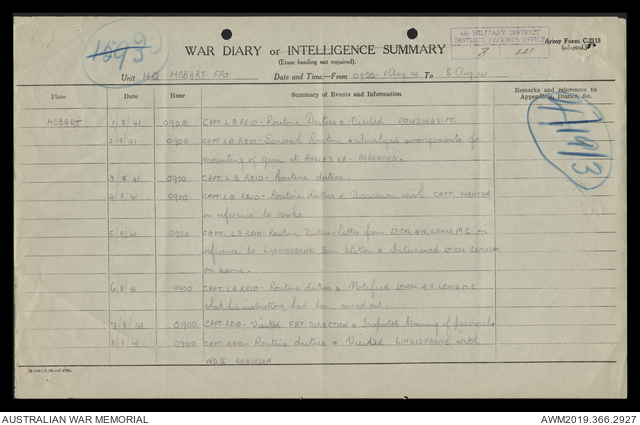 1593
6th MILITARY DISTRICT
DISTRICT RECORDS OFFICE
8 
Army Form C.2118
(adapted.)
WAR DIARY or INTELLIGENCE SUMMARY
(Erase heading not required).
Unit HQ HOBART FRT Date and Time:—From 0900-1 Aug 41 To 8 Aug 41
Place Date Hour Summary of Events and Information Remarks and references to
Appendices, Diaries, &c.
HOBART 1/8/41 0900 CAPT L B REID - Routine Duties & Visited
1/8/41 0900 CAPT L B REID - General Routine & Finalized arrangements for
mounting of gun at BARRACKS.
3/8/41 0900 CAPT L B REID - Routine duties.
4/8/41 0900 CAPT L B REID - Routine duties & Discussion with CAPT
in reference to cooks.
5/8/41 0900 CAPT. L B REID - Routine Duties. Letter from LT-COL A N LEWIS M.C. in
reference to LINDISFARNE Station & Interviewed LT-COL
on same.
6/8/41 0900 CAPT L B REID - Routine duties & Notified LT-COL LEWIS M C
that his instructions had been carried out.
7/8/41 0900 CAPT REID - Visited FRT DIRECTION & Inspected training of personnel
8/8/41 0900 CAPT REID - Routine duties & Visited LINDISFARNE with
WO II ROBINSON
AUSTRALIAN WAR MEMORIAL
AWM2019.366.2927